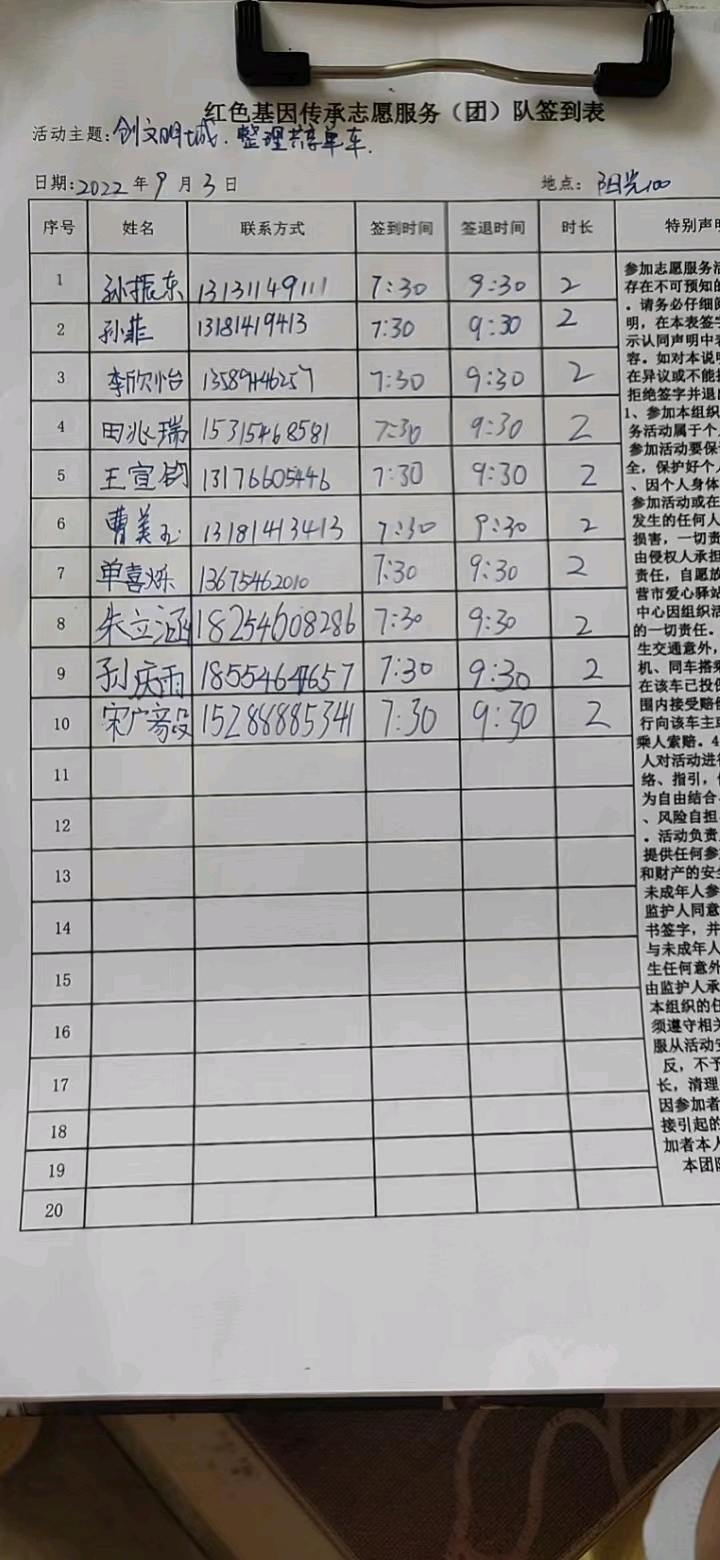 红色基因传承志愿服务（团）队签到表
活动主题:创文明城.整理共享单车.
日期:2022年9月3日 地点:阳光100
序号 姓名 联系方式 签到时间 签退时间 时长 特别声明
1 孙振东 13131149111 7:30 9:30 2
2 孙菲 13181419413 7:30 9:30 2
3 李欣怡 13589946257 7:30 9:30 2
4 田兆瑞 15315468581 7:30 9:30 2
5 王宣钧 13176605446 7:30 9:30 2
6 曹美玉 13181413413 7:30 9:30 2
7 单喜烁 13675462010 7:30 9:30 2
8 朱立涵 18254608286 7:30 9:30 2
9 孙庆雨 7:30 9:30 2
10 宋广 15288885341 7:30 9:30 2
11
12
13
14
15
16
17
18
19
20
参加志愿服务活
存在不可预知的
。请务必仔细阅
明，在本表签字
示认同声明中表
容。如对本说明
在异议或不能接
拒绝签字并退出
1、参加本组织
务活动属于个人
参加活动要保证
全，保护好个人
、因个人身体
参加活动或在
发生的任何人
损害，一切责
由侵权人承担
责任，自愿放
营市爱心驿站
中心因组织活
的一切责任。
生交通意外，
机、同车搭乘
在该车已投保
围内接受赔偿
行向该车主或
乘人索赔。4
人对活动进行
络、指引，
为自由结合、
、风险自担
。活动负责
提供任何参
和财产的安全
未成年人参
监护人同意
书签字，并
与未成年人
生任何意外
由监护人承
本组织的任
须遵守相关
服从活动安
反，不予
长，清理
因参加者
接引起的
加者本人
本团队